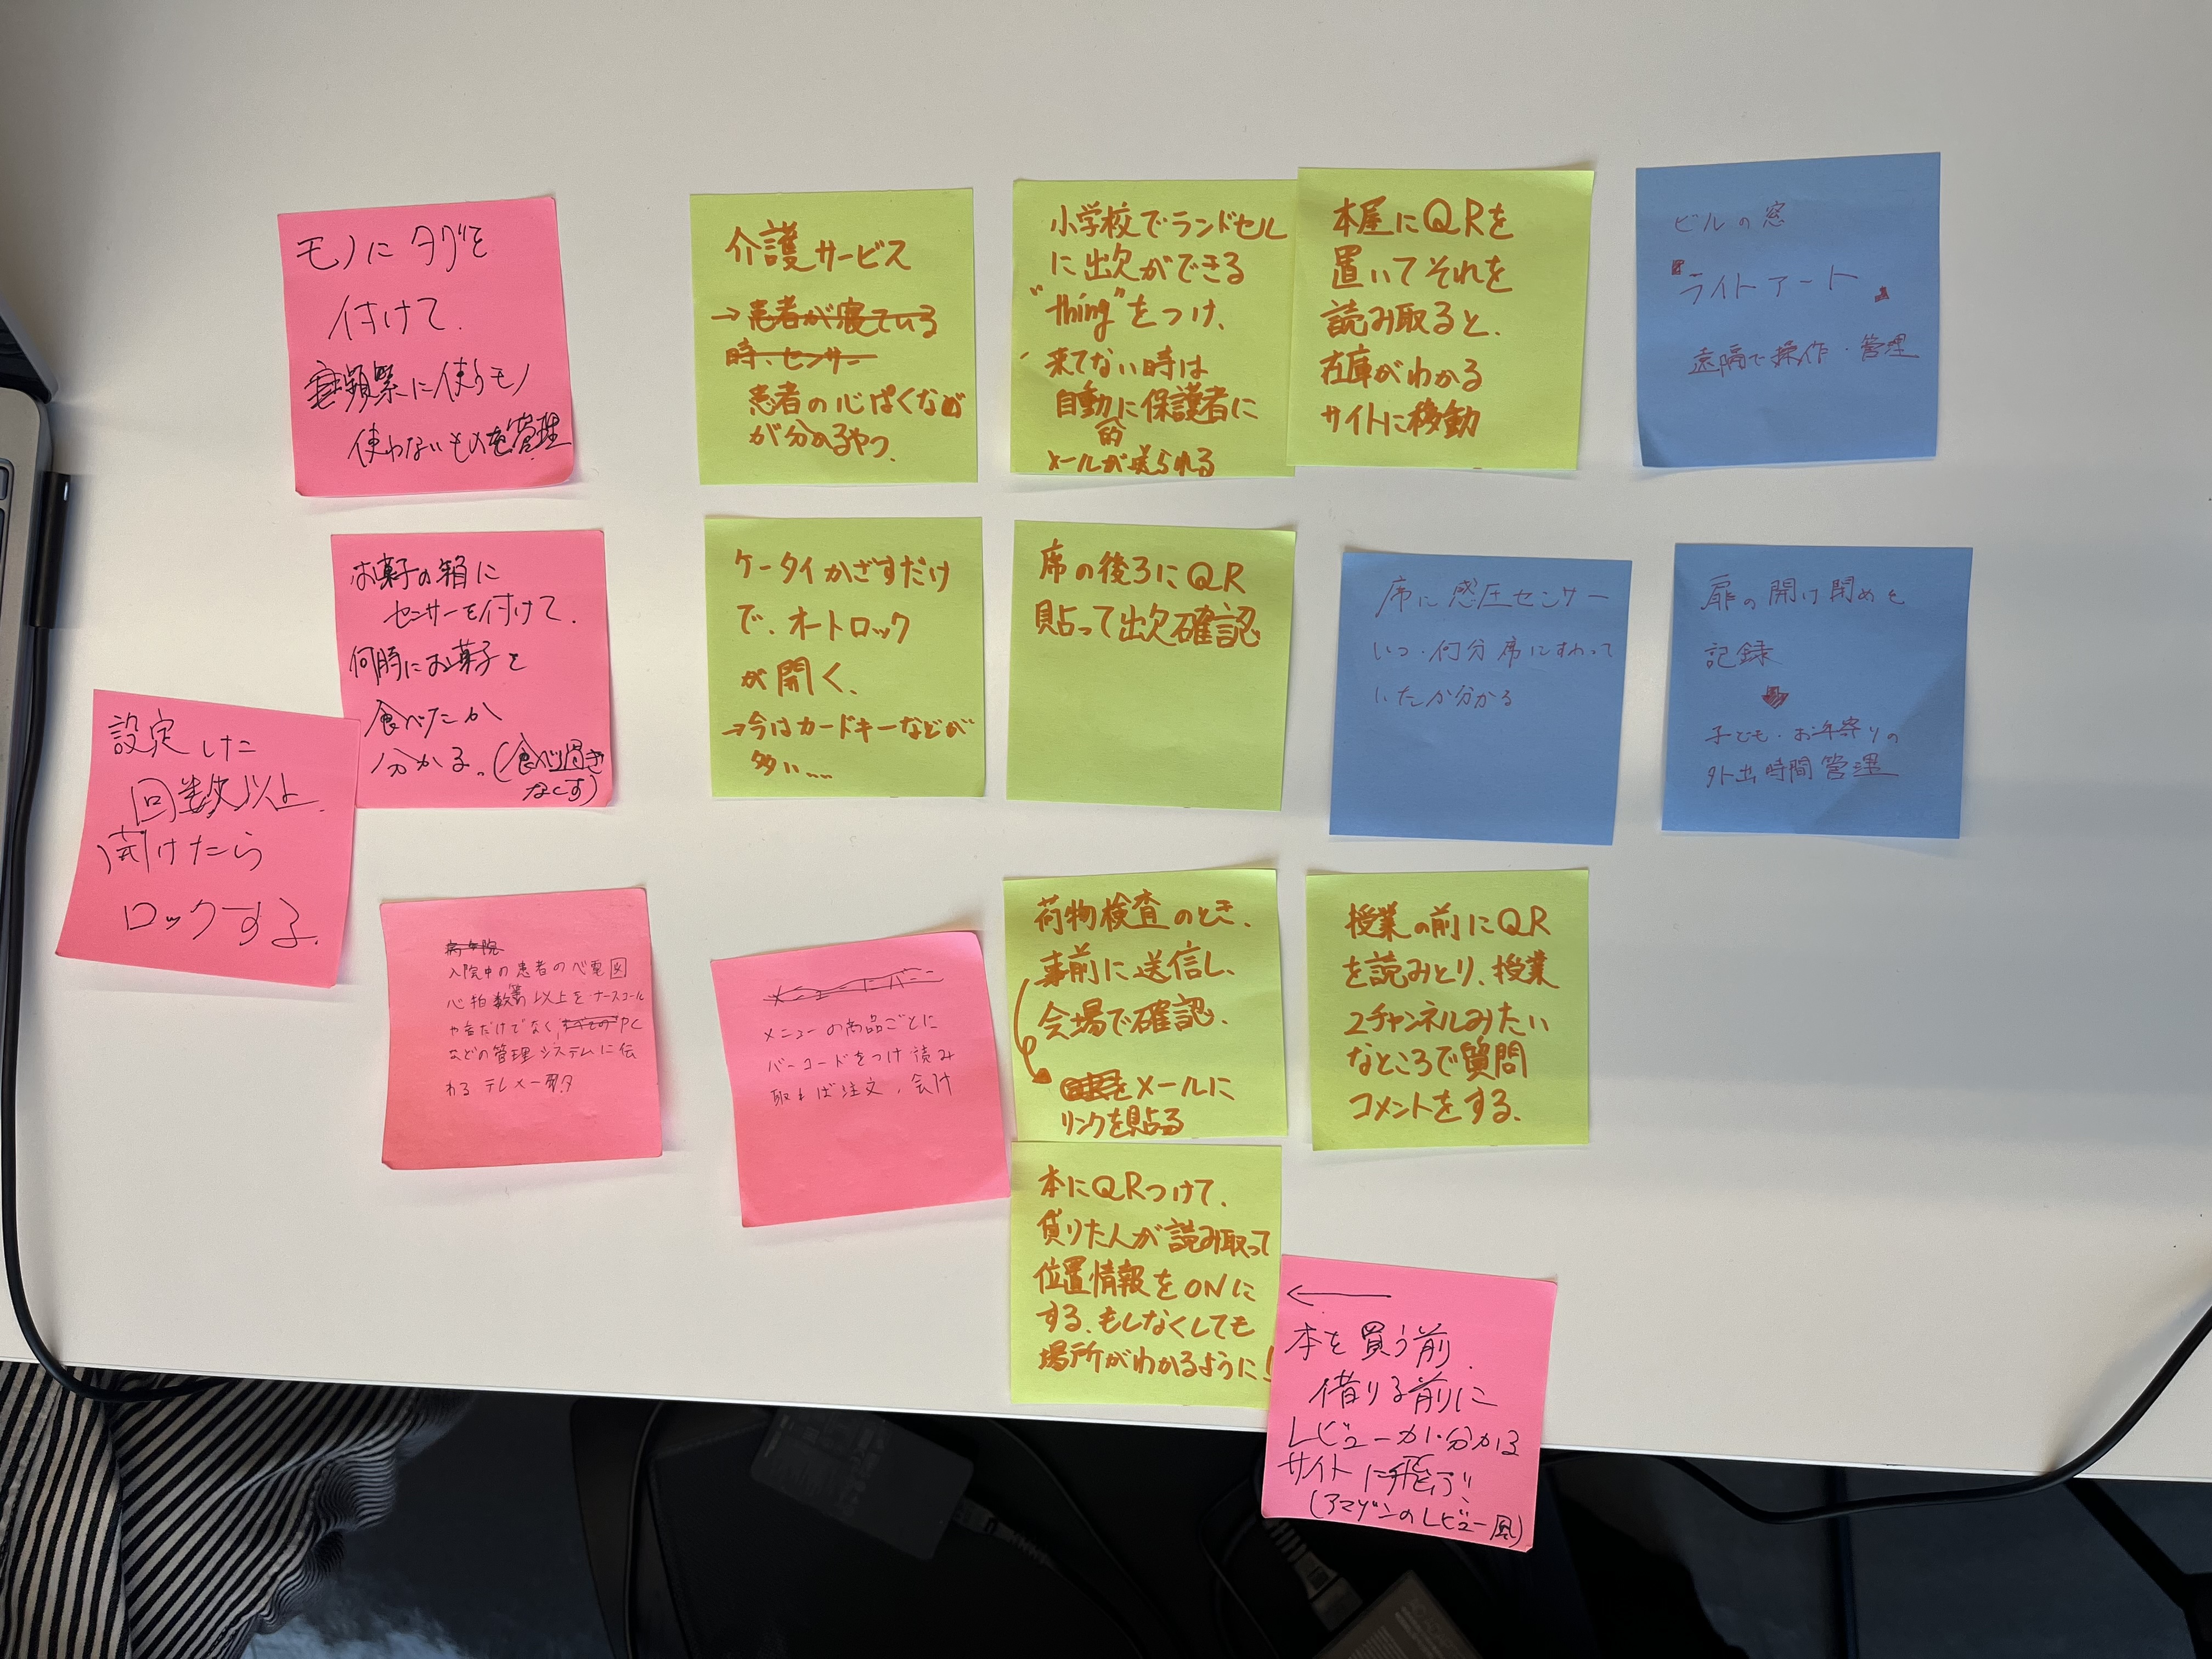 モノにタグを
付けて.
頻繁に使うモノ
使わないものを管理
介護サービス
→患者が寝ている
時、センサー
患者の心ぱくなど
が分かるやつ.
小学校でランドセル
に出欠ができる
"thing"をつけ、
来てない時は
自動に保護者に
的
メールが送られる
本屋にQRを
置いてそれを
読み取ると、
在庫がわかる
サイトに移動
ビルの窓
『ライトアート』
遠隔で操作・管理
お菓子の箱に
センサーを付けて.
何時にお菓子を
食べたか
分かる。(食べ過ぎ
なくす)
設定した
回数以上.
開けたら
ロックする.
ケータイかざすだけ
で、オートロック
が開く、
→今はカードキーなどが
多い....
席の後ろにQR
貼って出欠確認
席に感圧センサー
いつ・何分席にすわって
いたか分かる
扉の開け閉めを
記録
子ども・お年寄りの
外出時間管理
病院
入院中の患者の心電図
心拍数等以上をナースコール
や音だけでなく、すべてのPC
などの管理システムに伝
わるテレメータ
メニューの商品ごとに
バーコードをつけ読み
取れば注文、会計
荷物検査のとき、
事前に送信し、
会場で確認.
メールに
リンクを貼る
授業の前にQR
を読みとり、授業
2チャンネルみたい
なところで質問
コメントをする.
本にQRつけて、
貸りた人が読み取って
位置情報をONに
する、もしなくしても
場所がわかるように!
←
本を買う前.
借りる前に
レビューが分かる
サイトに飛ぶ!
(アマゾンのレビュー風)